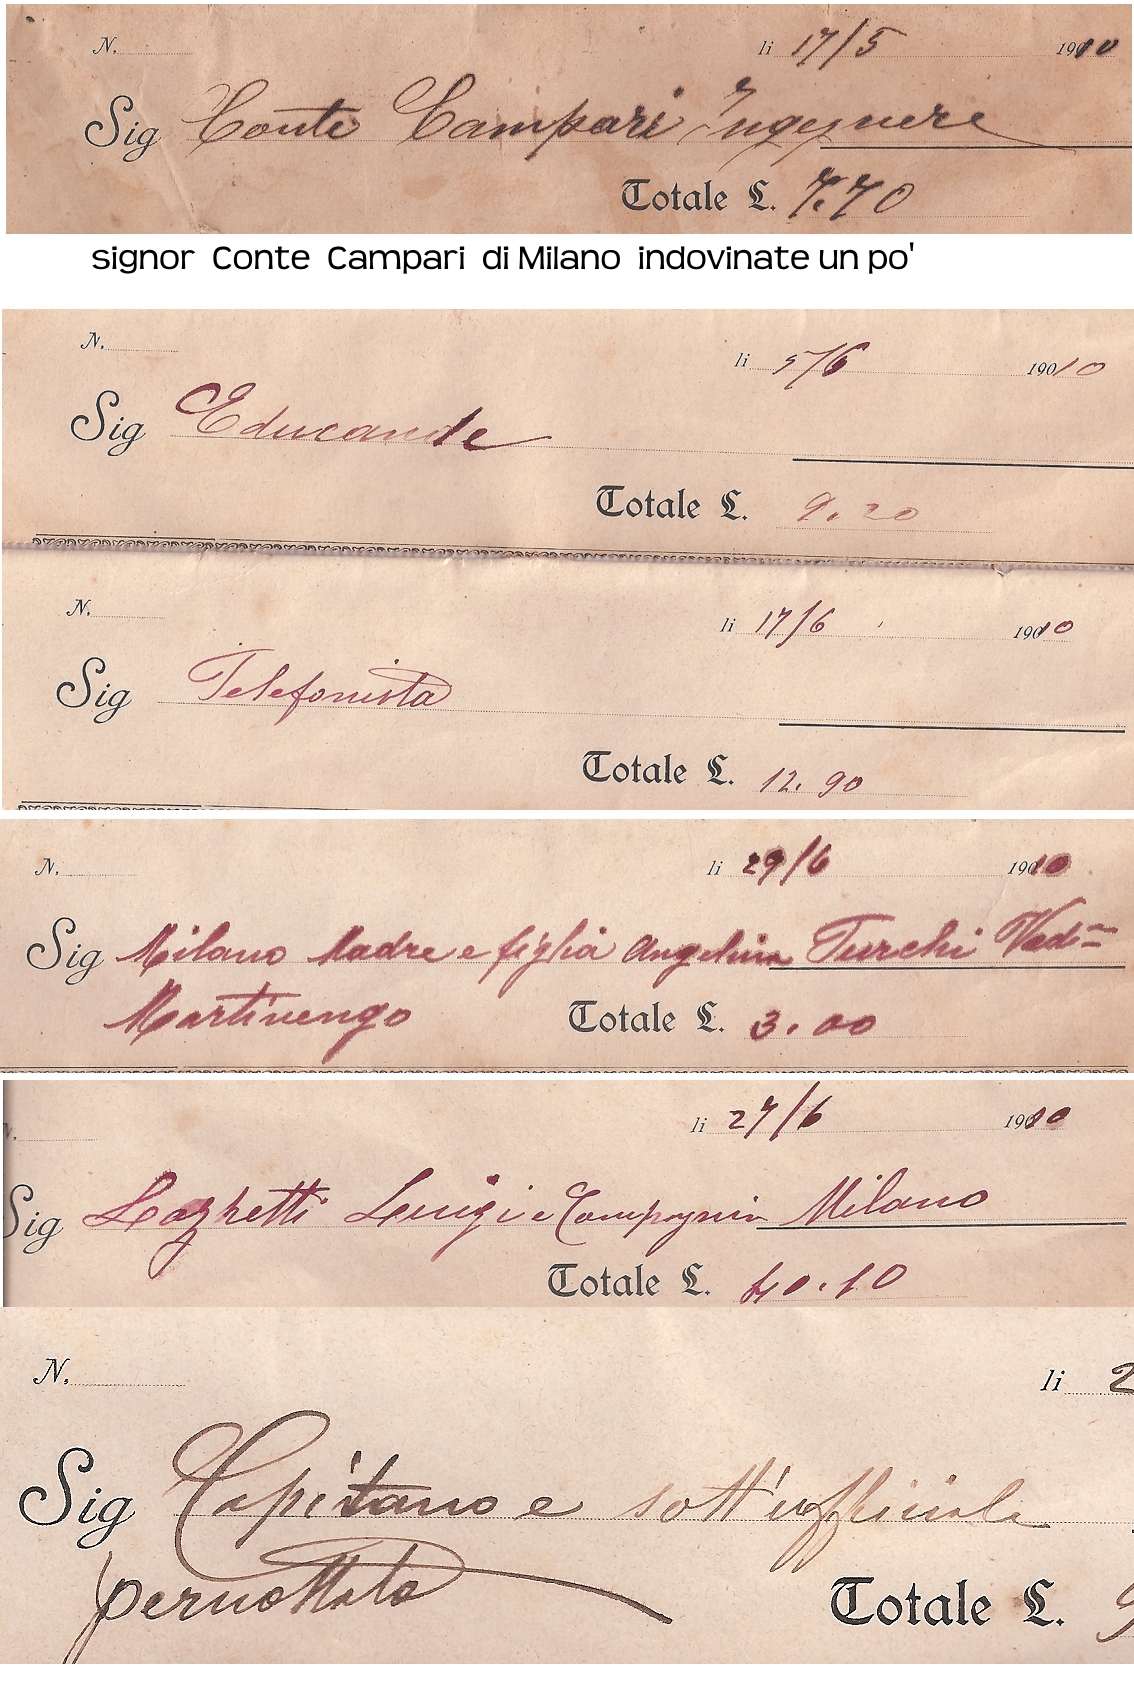 N. li 17/5 1910
Sig Conte Campari Ingegnere
Totale £. 7.70
signor Conte Campari di Milano indovinate un po'
N. li 5/6 19010
Sig Educande
Totale £. 9.20
N. li 17/6 1910
Sig Telefonista
Totale £. 12.90
N. li 29/6 1910
Sig Milano Madre e figlia Angelina Turchi
Martinengo Totale £. 3.00
li 27/6 1910
Sig Laghetti Luigi e Compagnia Milano
Totale £. 40.10
N. li 2
Sig Capitano e sott'ufficiale
pernottato Totale £. 9